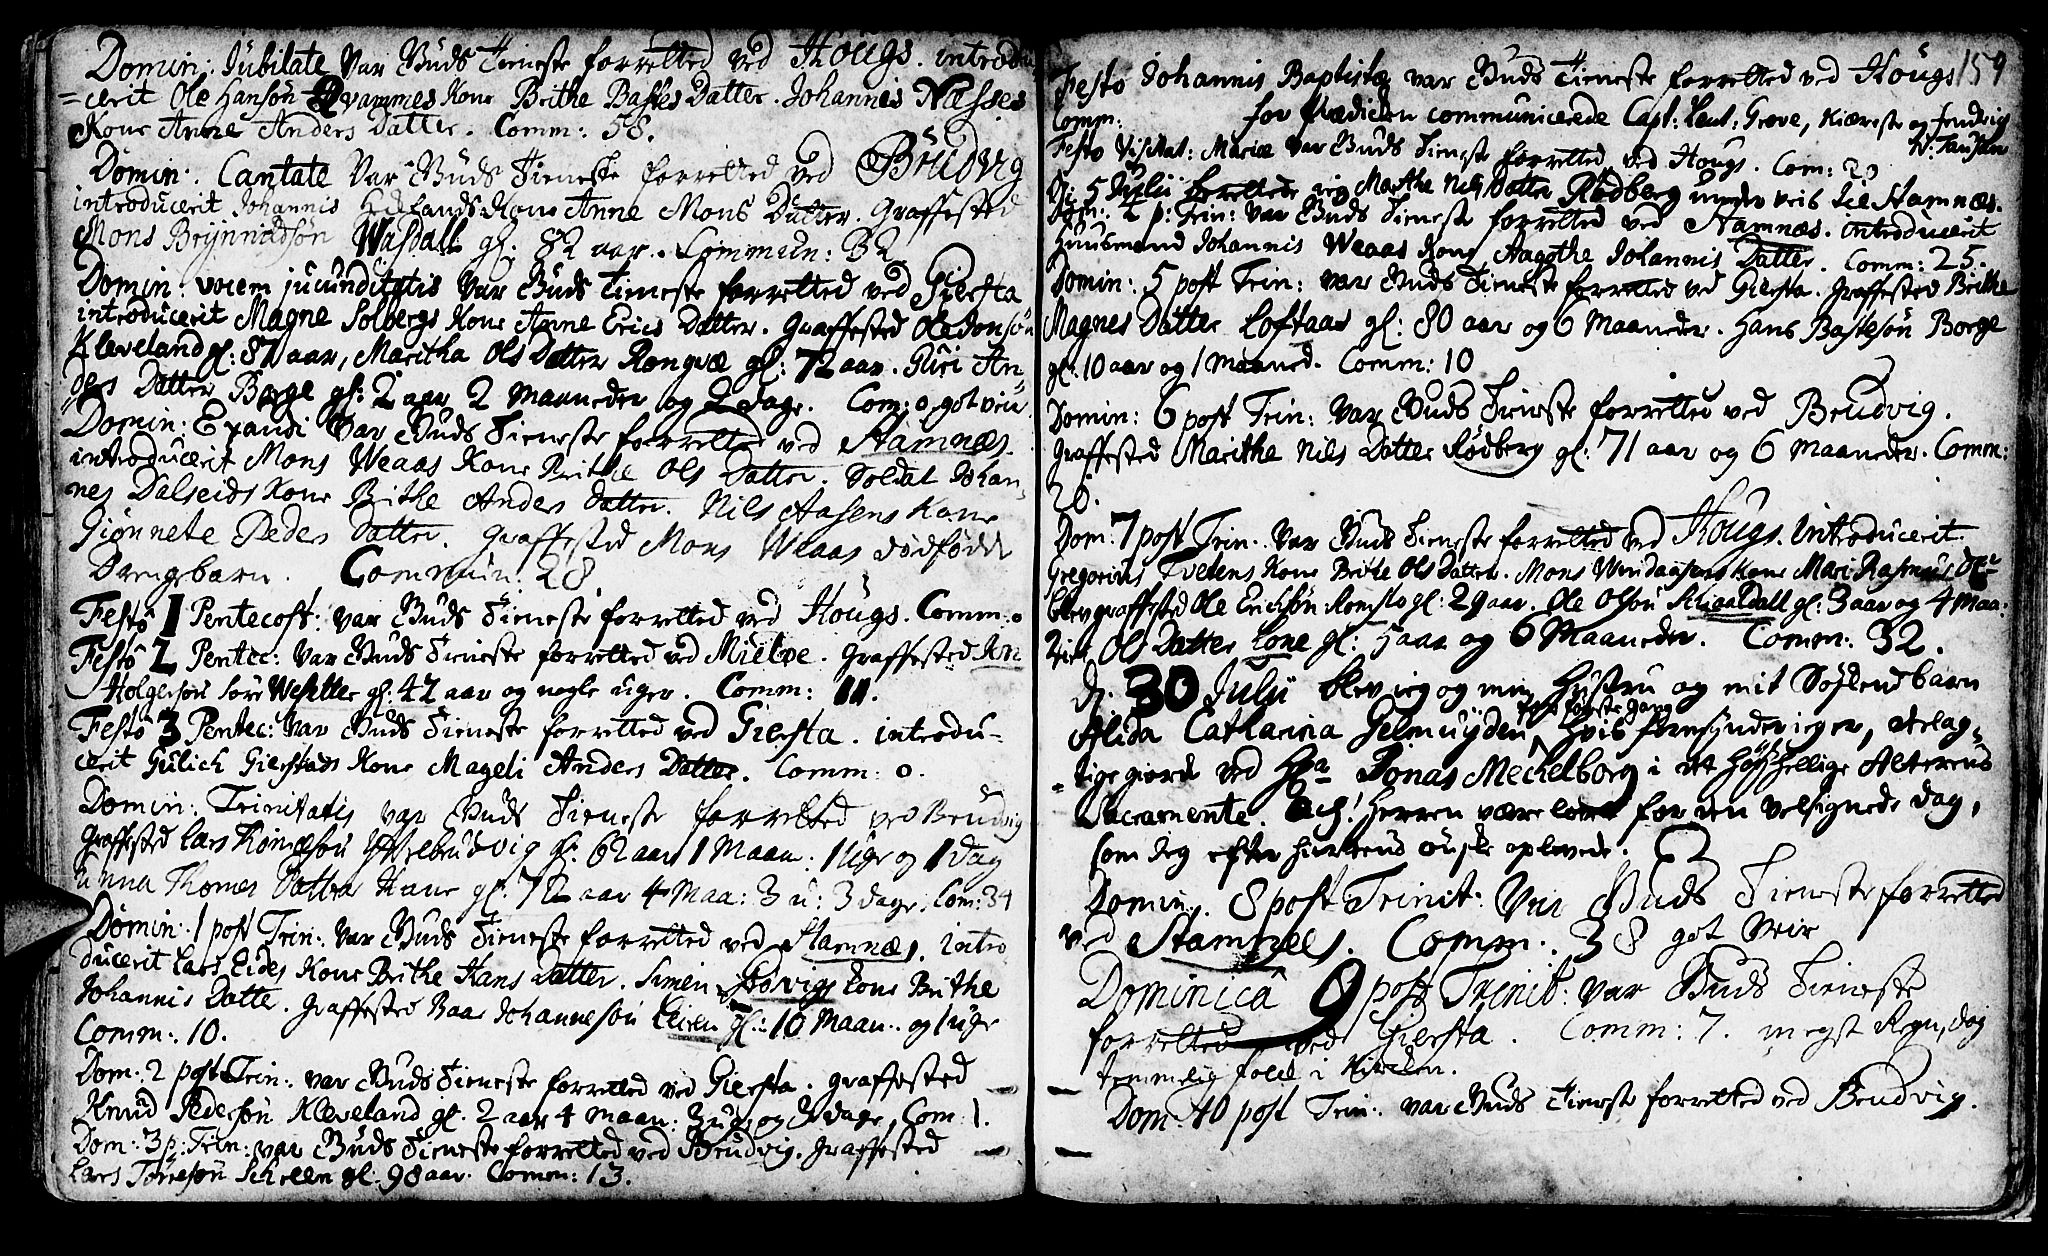 Domin: Jubilate var Guds Tieneste forretted ved Hougs. introdu
=cerit Ole Hansøn Qvammes Kone Brithe Bastes Datter. Johannes Næsses
Kone Anne Anders Datter. Comm: 58.
Domin: Cantate var Guds Tieneste forretted ved Brudvig
introducerit Johannis Kone Anne Mons Datter. Graffested
Mons Brynnildsøn Wasdall gl: 82 aar. Commun: 32
Domin: vocem jucunditatis var Guds Tieneste forretted ved Giersta
introducerit Magne Solbergs Kone Anne Erics Datter. Graffested Ole Jonsøn
Kleveland gl: 87 aar, Maritha Ols Datter Rongvæ gl: 72 aar. Guri An
ders Datter Borge gl: 2 aar 2 Maaneder og 2 dage. Com: 0 got veir
Domin: Exaudi var Guds Tieneste forretted ved Stamnæs.
introducerit Mons Weaas Kone Brithe Ols Datter. Soldat Johan
nes Dalseids Kone Brithe Anders Datter. Nils Aasens Kone
Giønnete Peders Datter. Graffested Mons Weaas dødfødde
Drengebarn. Commun: 28
Festo 1 Pentecost: var Guds Tieneste forretted ved Hougs. Comm: 0
Festo 2 Pentec: var Guds Tieneste forretted ved Mielde. Graffested
Holgersøn gl: 42 aar og nogle uger. Comm: 11.
Festo 3 Pentec: var Guds Tieneste forretted ved Giersta. introdu-
cerit Gulich Gierstads Kone Mageli Anders Datter. Comm: 0.
Domin: Trinitatis var Guds Tieneste forretted ved Brudvig
Graffested Lars gl: 62 aar 1 Maan: 1 Uge og 1 Dag
Anna Thomes Datter gl: 72 aar 4 Maa: 3 u: 3 dage. Com: 34
Domin: 1 post Trin: var Guds Tieneste forretted ved Stamnæs. intro
ducerit Lars Eides Kone Brithe Hans Datter. Simen Kone Brithe
Johannis Datter. Graffested Baar Johannesøn gl: 10 Maan: og 1 uge
Comm: 10.
Dom: 2 post Trin: var Guds Tieneste forretted ved Giersta. Graffested
Knud Pedersøn Kleveland gl: 2 aar 4 maan: 3 ug: og dage, Com: 1.
Dom: 3 p: Trin: var Guds Tieneste forretted ved Brudvig. Graffested
Lars gl: 98 aar. Comm: 13.
159
Festo Johannis Baptistæ var Guds Tieneste forretted ved Hougs
Comm: for Prædicken communicerede Capt: Leut: Grove, Kiæreste og
Festo Visitat: Mariæ var Guds Tieneste forretted ved Hougs. Com: 20
D: 5 Julii berettede jeg Marthe Nils Datter Rødberg under veis til Stamnæs.
Dom: p: Trin: var Guds Tieneste forretted ved Stamnæs. introducerit
Huusmand Johannis Weaas Kone Aagothe Johannis Datter. Comm: 25.
Domin: 5 post Trin: var Guds Tieneste forretted ved Giersta. Graffested Brithe
Magnes Datter Loftaas gl: 80 aar og 6 Maaneder. Hans Bastesøn Borge
gl: 10 aar og 1 Maaned. Comm: 10
Domin: 6 post Trin: var Guds Tieneste forretted ved Brudvig.
Graffested Marithe Nils Datter Rødberg gl: 71 aar og 6 Maaneder. Comm:
28.
Dom: 7 post Trin: var Guds Tieneste forretted ved Hougs. Introducerit
Gregorius Tvetens Kone Brithe Ols Datter. Mons Kone Mari Rasmus
blev graffested Ole Erichsøn gl: 29 aar. Ole Olsøn gl: 3 aar og 4 Maa:
Ols Datter Lone gl: aar og 6 Maaneder. Comm: 32.
D: 30 Julii blev jeg og min Hustru og mit Søskendbarn
Alida Catharina Gelmuyden for første gang hvis fornsynder,
giorde ved Hr. Jonas Mechelborg i det Høyhellige Alterens
Sacramente. Ach! Herren være lovet for den velsignede dag,
som jeg efter hiertens ønske oplevede.
Domin: 8 post Trinit: var Guds Tieneste forretted
ved Stamnæs. Comm: 38 got Veir
Dominicâ 9 post Trinit: var Guds Tieneste
forretted ved Giersta. Comm: 7. megst Regn, dog
temmelig folk i Kircken.
Dom: 10 post Trin: var Guds Tieneste forretted ved Brudvig.